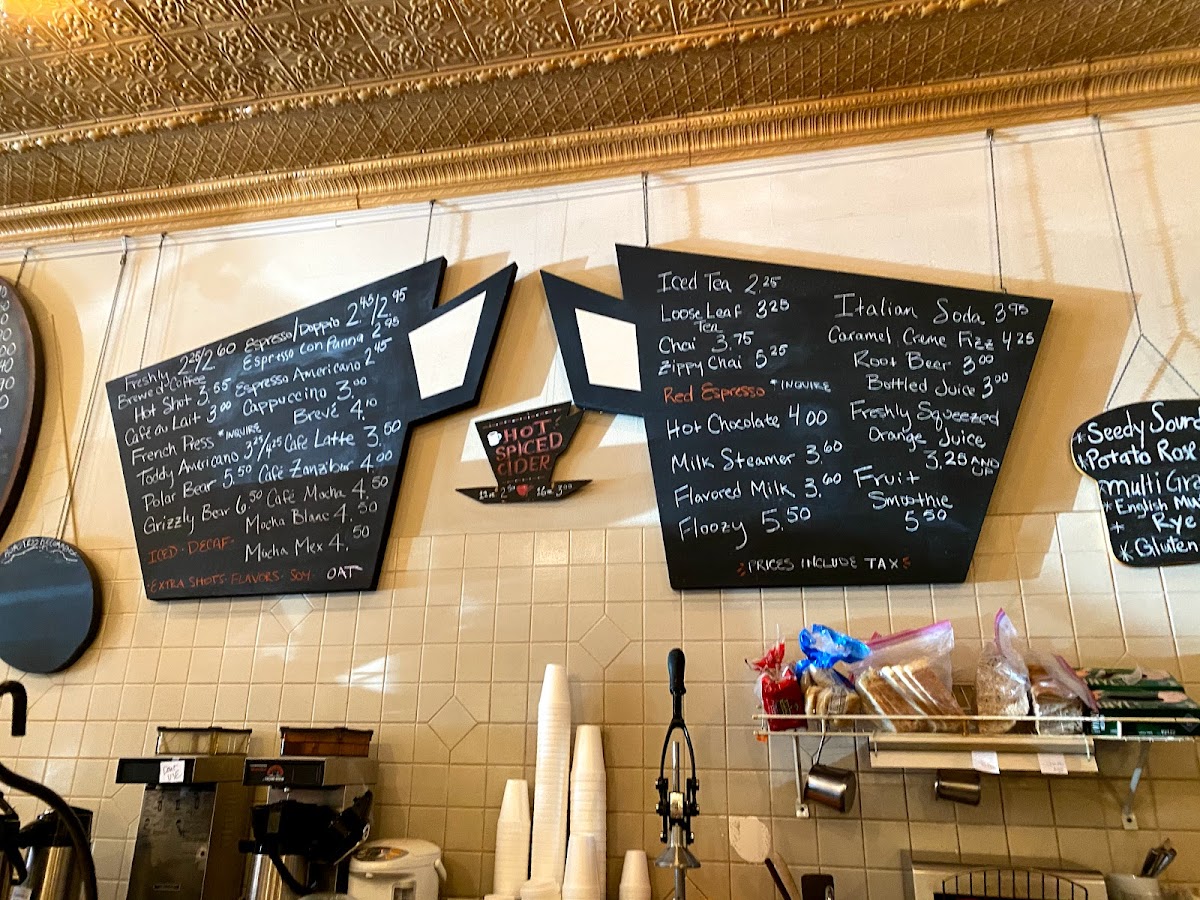 Freshly Brewed Coffee 2.25/2.60
Hot Shot 3.55
Café au Lait 3.00
French Press *INQUIRE
Toddy Americano 3.25/4.25
Polar Bear 5.50
Grizzly Bear 6.50
ICED · DECAF ·
· EXTRA SHOTS · FLAVORS · SOY · OAT
Espresso/Doppio 2.45/2.95
Espresso con Panna 2.95
Espresso Americano 2.45
Cappuccino 3.00
Brevé 4.10
Café Latte 3.50
Café Zanzibar 4.00
Café Mocha 4.50
Mocha Blanc 4.50
Mocha Mex 4.50
HOT
SPICED
CIDER
12oz 2.50 16oz 3.00
Iced Tea 2.25
Loose Leaf Tea 3.25
Chai 3.75
Zippy Chai 5.25
Red Espresso *INQUIRE
Hot Chocolate 4.00
Milk Steamer 3.60
Flavored Milk 3.60
Floozy 5.50
Italian Soda 3.95
Caramel Creme Fizz 4.25
Root Beer 3.00
Bottled Juice 3.00
Freshly Squeezed
Orange Juice
3.25 AND UP
Fruit
Smoothie
5.50
PRICES INCLUDE TAX
*Seedy Sour
*Potato Ro
Multi Gra
*English Mu
* Rye
*Gluten